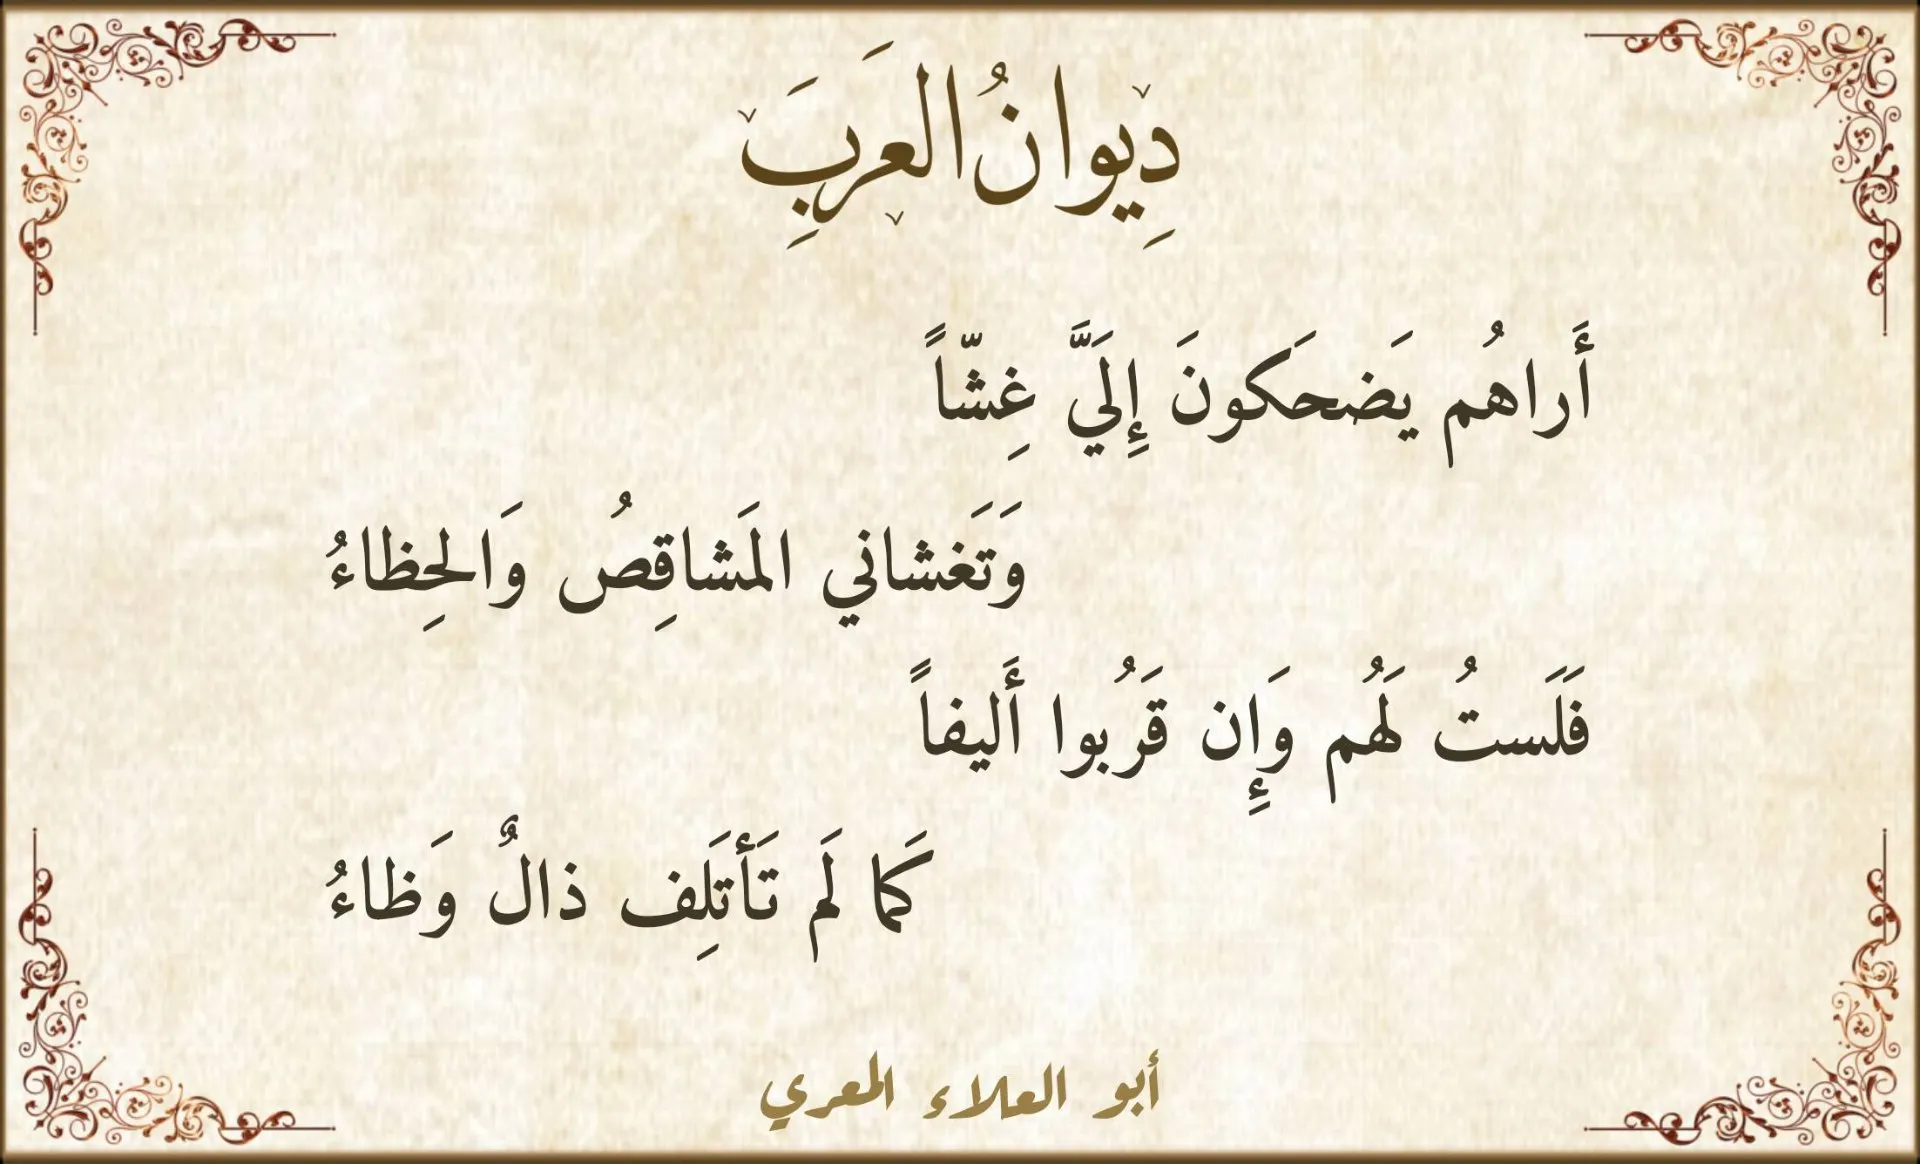 دِيوانُ العَرَبِ
أَراهُم يَضحَكونَ إِلَيَّ غِشّاً
وَتَغشاني المَشاقِصُ وَالحِظاءُ
فَلَستُ لَهُم وَإِن قَرُبوا أَليفاً
كَما لَم تَأتَلِف ذالٌ وَظاءُ
أبو العلاء المعري